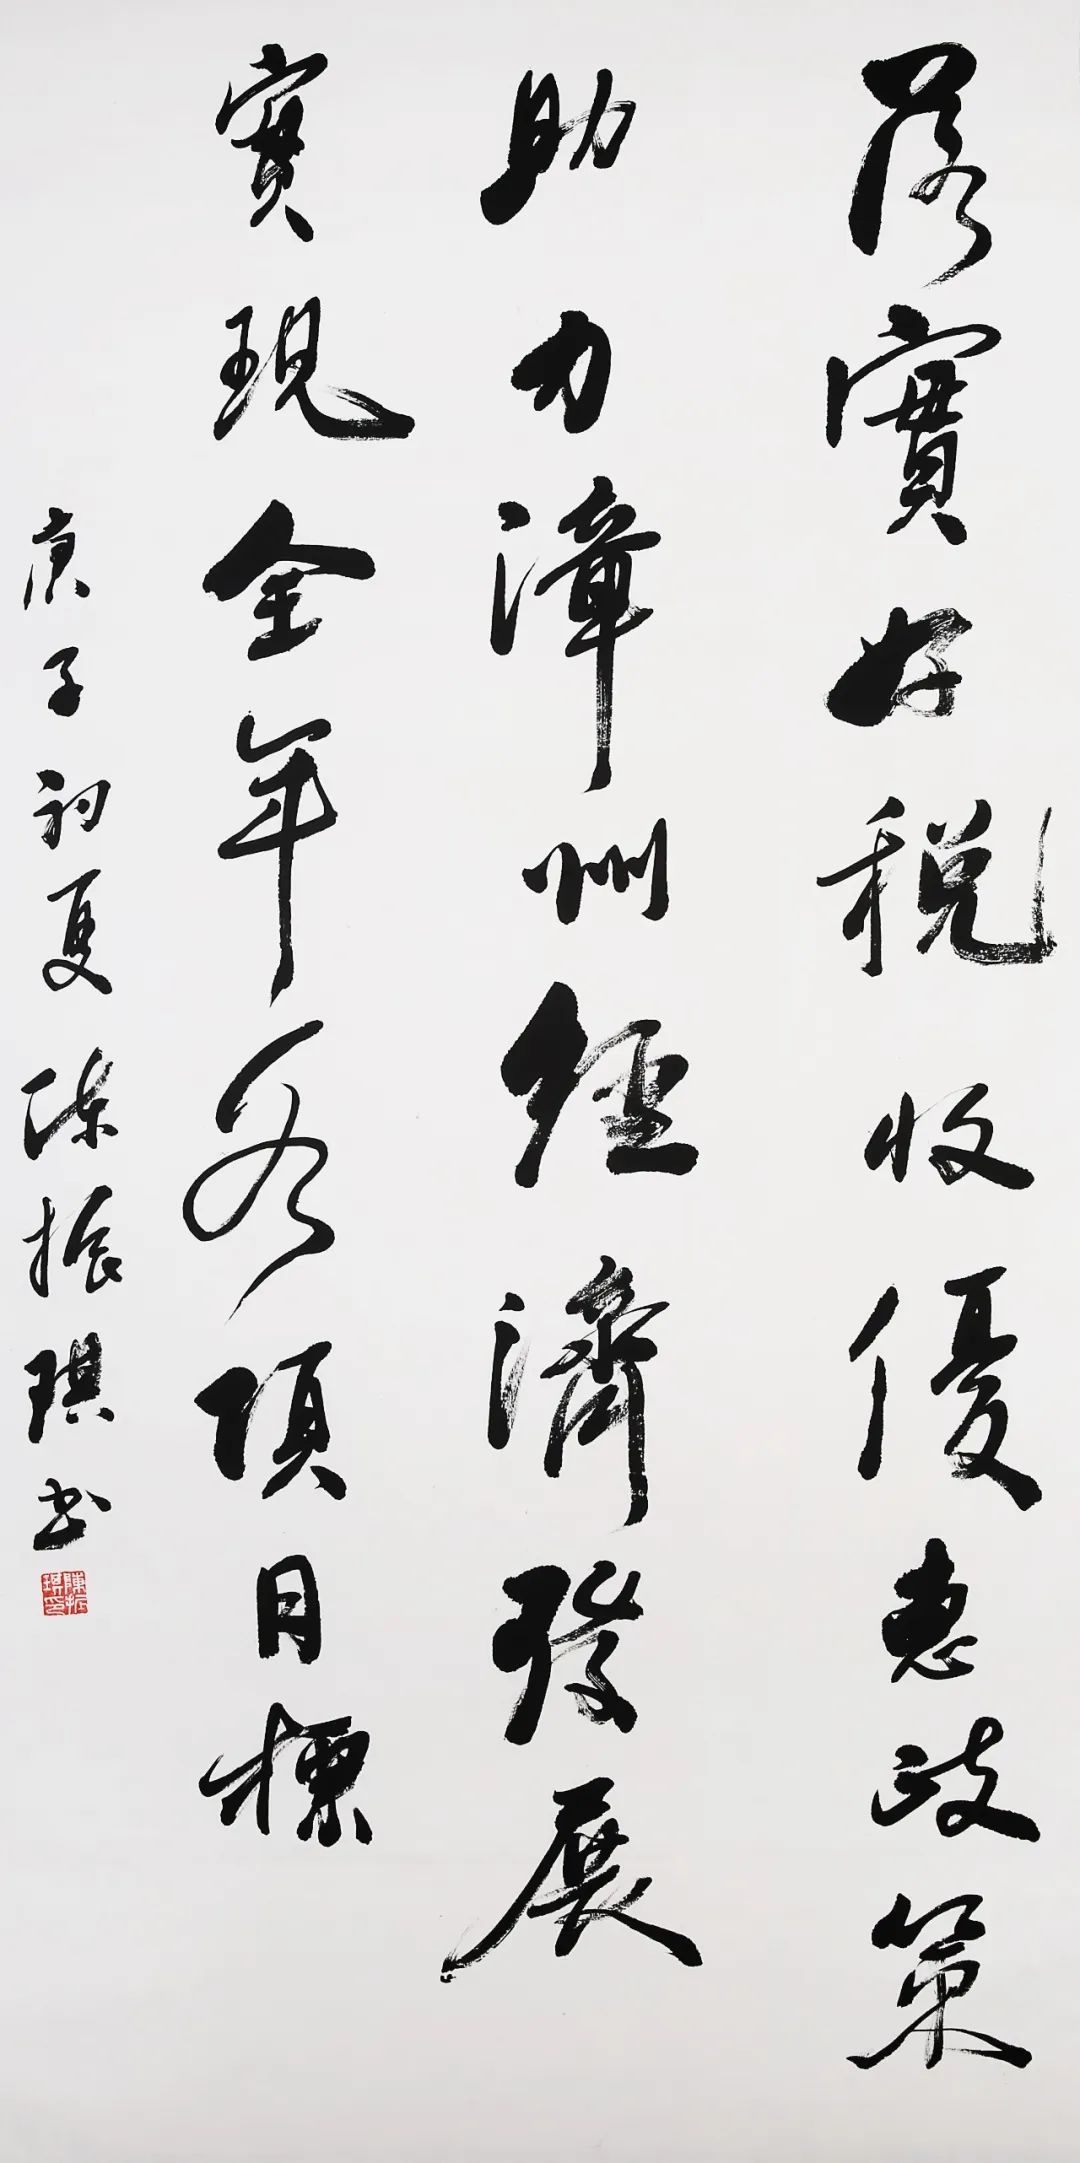 落實好税收優惠政策
助力漳州經濟發展
實現全年各項目標
庚子初夏陳振琪书
陳振琪印